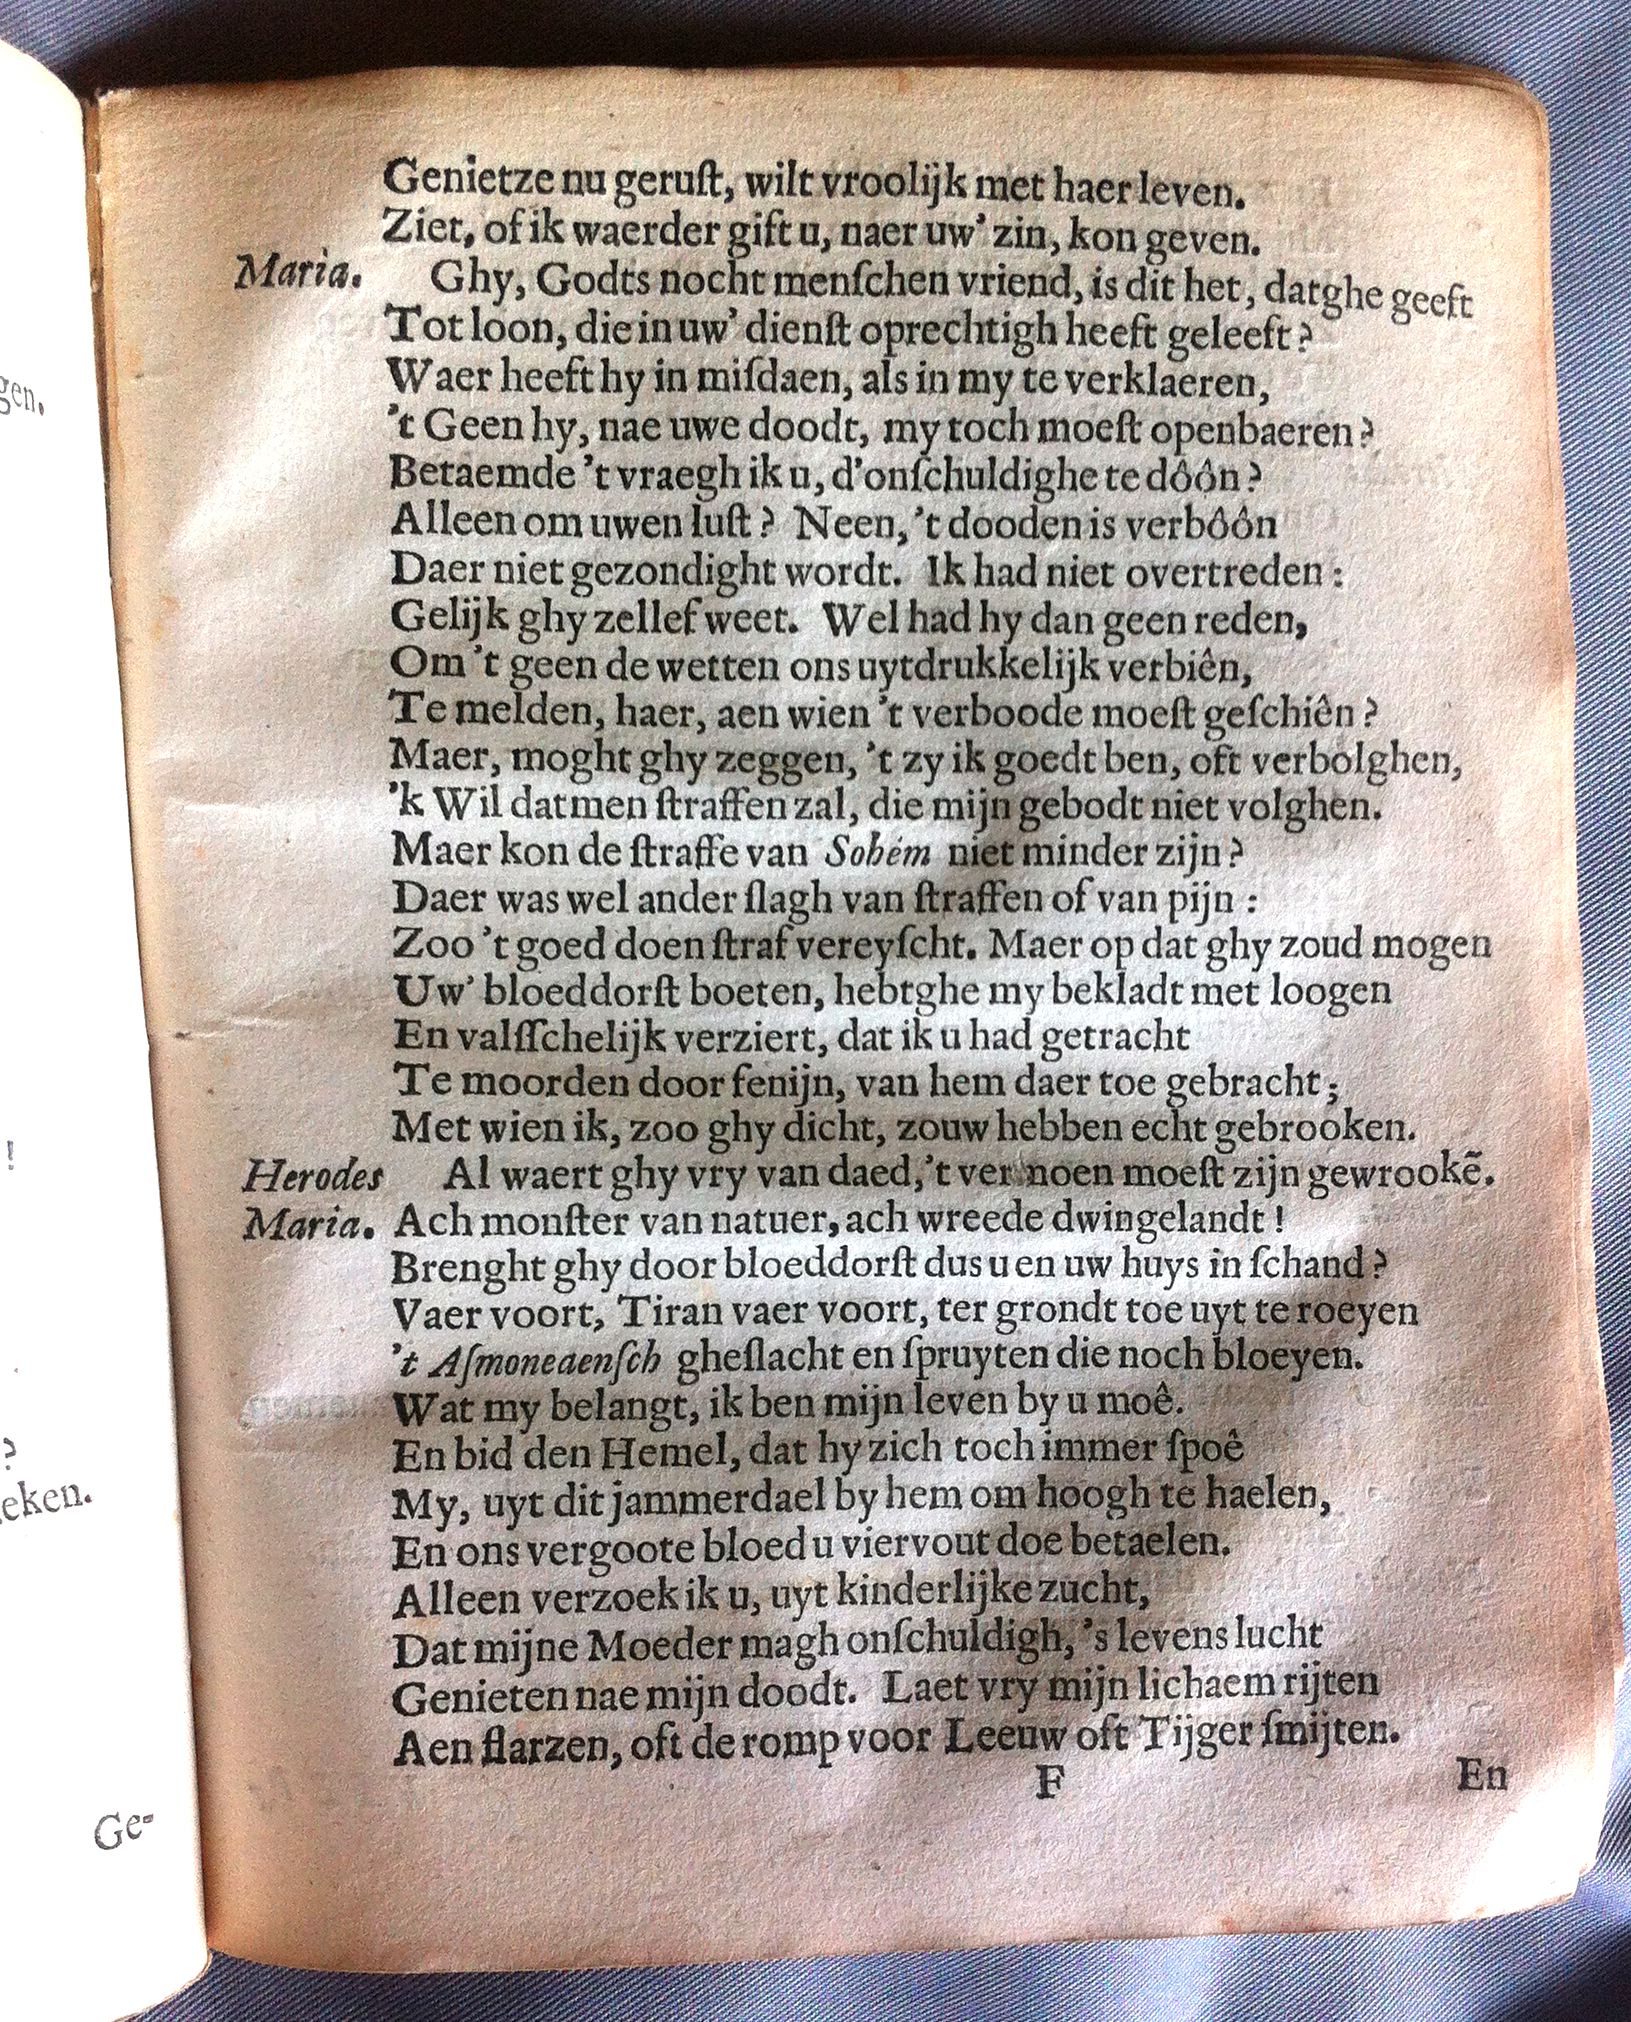 gen.
!
?
eken.
Ge-
Genietze nu geruſt, wilt vroolijk met haer leven.
Ziet, of ik waerder gift u, naer uw' zin, kon geven.
Maria. Ghy, Godts nocht menſchen vriend, is dit het, datghe geeft
Tot loon, die in uw' dienſt oprechtigh heeft geleeft?
Waer heeft hy in miſdaen, als in my te verklaeren,
't Geen hy, nae uwe doodt, my toch moeſt openbaeren?
Betaemde 't vraegh ik u, d'onſchuldighe te dôôn?
Alleen om uwen luſt? Neen, 't dooden is verbôôn
Daer niet gezondight wordt. Ik had niet overtreden:
Gelijk ghy zellef weet. Wel had hy dan geen reden,
Om 't geen de wetten ons uytdrukkelijk verbiên,
Te melden, haer, aen wien 't verboode moeſt geſchiên?
Maer, moght ghy zeggen, 't zy ik goedt ben, oft verbolghen,
'k Wil datmen ſtraffen zal, die mijn gebodt niet volghen.
Maer kon de ſtraffe van Sohém niet minder zijn?
Daer was wel ander ſlagh van ſtraffen of van pijn:
Zoo 't goed doen ſtraf vereyſcht. Maer op dat ghy zoud mogen
Uw' bloeddorſt boeten, hebtghe my bekladt met loogen
En valſſchelijk verziert, dat ik u had getracht
Te moorden door fenijn, van hem daer toe gebracht;
Met wien ik, zoo ghy dicht, zouw hebben echt gebrooken.
Herodes Al waert ghy vry van daed, 't vermoen moeſt zijn gewrookē.
Maria. Ach monſter van natuer, ach wreede dwingelandt!
Brenght ghy door bloeddorſt dus u en uw huys in ſchand?
Vaer voort, Tiran vaer voort, ter grondt toe uyt te roeyen
't Aſmoneaenſch gheſlacht en ſpruyten die noch bloeyen.
Wat my belangt, ik ben mijn leven by u moê.
En bid den Hemel, dat hy zich toch immer ſpoê
My, uyt dit jammerdael by hem om hoogh te haelen,
En ons vergoote bloed u viervout doe betaelen.
Alleen verzoek ik u, uyt kinderlijke zucht,
Dat mijne Moeder magh onſchuldigh, 's levens lucht
Genieten nae mijn doodt. Laet vry mijn lichaem rijten
Aen flarzen, oft de romp voor Leeuw oft Tijger ſmijten.
F En